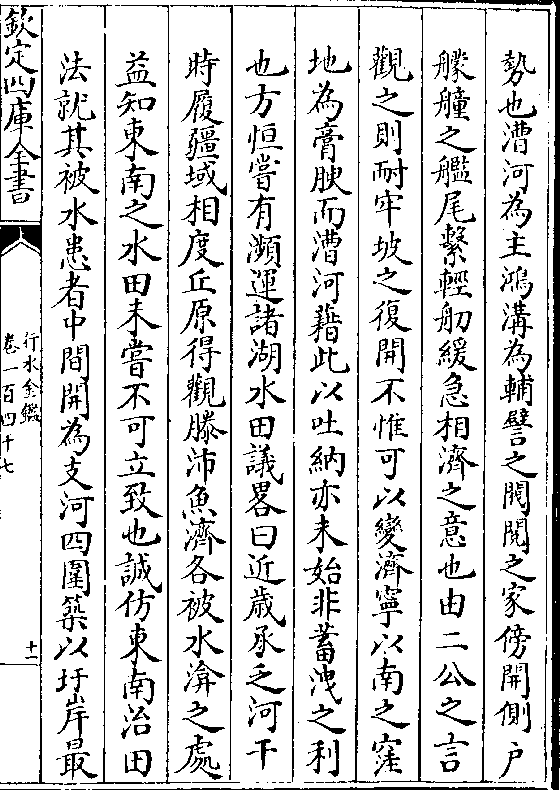 勢也漕河為主鴻溝為輔譬之閥閲之家傍開側戶
艨艟之艦尾繫輕舠緩急相濟之意也由二公之言
觀之則耐牢坡之復開不惟可以變濟寧以南之窪
地為膏腴而漕河藉此以吐納亦未始非蓄洩之利
也方恒嘗有瀕運諸湖水田議畧曰近歲承乏河干
時履疆域相度丘原得觀滕沛魚濟各被水渰之處
益知東南之水田未嘗不可立致也誠仿東南治田
法就其被水患者中間開為支河四圍築以圩岸最
欽定四庫全書
行水金鑑
卷一百四十七
十一